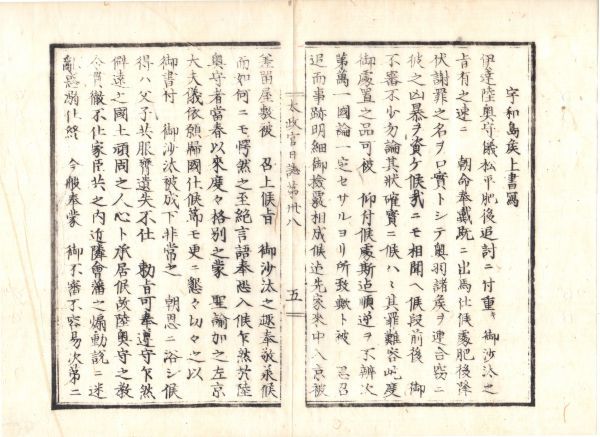 宇和島矦上書寫
伊達陸奥守儀松平肥後追討ニ付重キ御沙汰之
旨有之速ニ 朝命奉戴既ニ出馬仕候處肥後降
伏謝罪之名ヲ口實トシテ奥羽諸矦ヲ連合竊ニ
彼之凶暴ヲ資ケ候哉ニモ相聞ヘ候段前後 御
不審不少勿論其状確實ニ候ハヽ其罪難容屹度
御處置之品可被 仰付候處斯迠順逆ヲ不辨次
第萬一國論一定セサルヨリ所致歟ト被 思召
追而事跡明細御撿覈相成候迠先家來中入京被
太政官日誌第卅八
五
釜留屋敷被 召上候旨 御沙汰之趣奉敬承候
而如何ニモ愕然之至絶言語奉恐入候乍然於陸
奥守者當春以來度々格别之蒙 聖諭加之左京
大夫儀依願歸國仕候節モ更ニ懇々切々之以
御書付 御沙汰被成下非常之 朝恩ニ浴シ候
得ハ父子共服膺遺失不仕 勅旨可奉遵守乍然
僻遠之國土頑固之人心ト承居候故陸奥守之教
令貫徹不仕家臣共之内近隣會藩之煽動説ニ迷
亂惑溺仕終 今般奉蒙 御不審不容易次第ニ